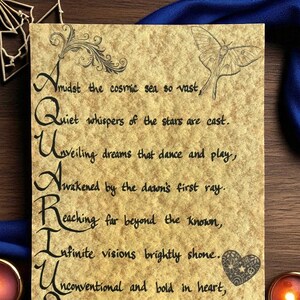 Amidst the cosmic sea so vast,
Quiet whispers of the stars are cast.
Unveiling dreams that dance and play,
Awakened by the dawn's first ray.
Reaching far beyond the known,
Infinite visions brightly shone.
Unconventional and bold in heart,